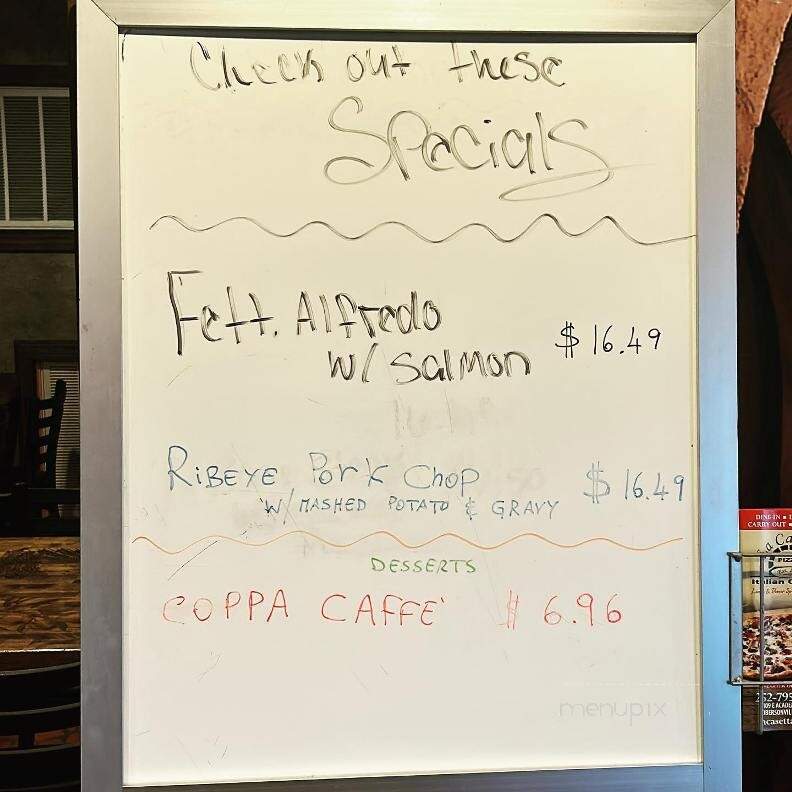 Check out these
Specials
Fett. Alfredo
w/ Salmon $16.49
RIBEYE Pork Chop $16.49
W/ MASHED POTATO & GRAVY
DESSERTS
COPPA CAFFE' $6.96
menupix
DINE-IN
CARRY OUT
PIZZ
Italian